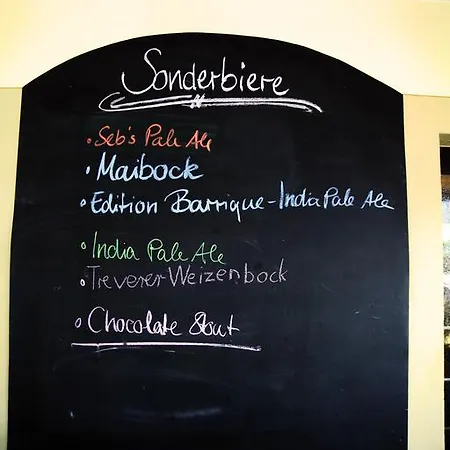 Sonderbiere
• Seb's Pale Ale
• Maibock
• Edition Barrique - India Pale Ale
• India Pale Ale
• Treverer Weizenbock
• Chocolate Stout